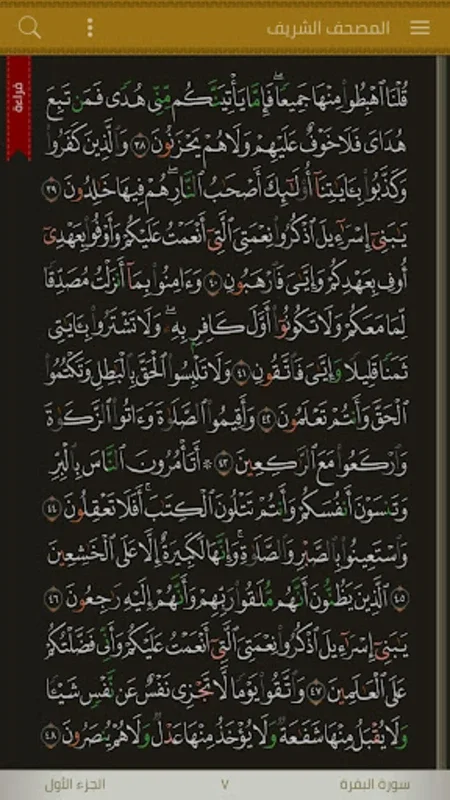 المصحف الشريف
قراءة
قُلْنَا ٱهْبِطُوا۟ مِنْهَا جَمِيعًا ۖ فَإِمَّا يَأْتِيَنَّكُم مِّنِّى هُدًى فَمَن تَبِعَ
هُدَاىَ فَلَا خَوْفٌ عَلَيْهِمْ وَلَا هُمْ يَحْزَنُونَ ٣٨ وَٱلَّذِينَ كَفَرُوا۟
وَكَذَّبُوا۟ بِـَٔايَـٰتِنَآ أُو۟لَـٰٓئِكَ أَصْحَـٰبُ ٱلنَّارِ ۖ هُمْ فِيهَا خَـٰلِدُونَ ٣٩
يَـٰبَنِىٓ إِسْرَٰٓءِيلَ ٱذْكُرُوا۟ نِعْمَتِىَ ٱلَّتِىٓ أَنْعَمْتُ عَلَيْكُمْ وَأَوْفُوا۟ بِعَهْدِىٓ
أُوفِ بِعَهْدِكُمْ وَإِيَّـٰىَ فَٱرْهَبُونِ ٤٠ وَءَامِنُوا۟ بِمَآ أَنزَلْتُ مُصَدِّقًا
لِّمَا مَعَكُمْ وَلَا تَكُونُوٓا۟ أَوَّلَ كَافِرٍۭ بِهِۦ ۖ وَلَا تَشْتَرُوا۟ بِـَٔايَـٰتِى
ثَمَنًا قَلِيلًا وَإِيَّـٰىَ فَٱتَّقُونِ ٤١ وَلَا تَلْبِسُوا۟ ٱلْحَقَّ بِٱلْبَـٰطِلِ وَتَكْتُمُوا۟
ٱلْحَقَّ وَأَنتُمْ تَعْلَمُونَ ٤٢ وَأَقِيمُوا۟ ٱلصَّلَوٰةَ وَءَاتُوا۟ ٱلزَّكَوٰةَ
وَٱرْكَعُوا۟ مَعَ ٱلرَّٰكِعِينَ ٤٣ ۞ أَتَأْمُرُونَ ٱلنَّاسَ بِٱلْبِرِّ
وَتَنسَوْنَ أَنفُسَكُمْ وَأَنتُمْ تَتْلُونَ ٱلْكِتَـٰبَ ۚ أَفَلَا تَعْقِلُونَ ٤٤
وَٱسْتَعِينُوا۟ بِٱلصَّبْرِ وَٱلصَّلَوٰةِ ۚ وَإِنَّهَا لَكَبِيرَةٌ إِلَّا عَلَى ٱلْخَـٰشِعِينَ
٤٥ ٱلَّذِينَ يَظُنُّونَ أَنَّهُم مُّلَـٰقُوا۟ رَبِّهِمْ وَأَنَّهُمْ إِلَيْهِ رَٰجِعُونَ ٤٦
يَـٰبَنِىٓ إِسْرَٰٓءِيلَ ٱذْكُرُوا۟ نِعْمَتِىَ ٱلَّتِىٓ أَنْعَمْتُ عَلَيْكُمْ وَأَنِّى فَضَّلْتُكُمْ
عَلَى ٱلْعَـٰلَمِينَ ٤٧ وَٱتَّقُوا۟ يَوْمًا لَّا تَجْزِى نَفْسٌ عَن نَّفْسٍ شَيْـًٔا
وَلَا يُقْبَلُ مِنْهَا شَفَـٰعَةٌ وَلَا يُؤْخَذُ مِنْهَا عَدْلٌ وَلَا هُمْ يُنصَرُونَ ٤٨
سورة البقرة ٧ الجزء الأول